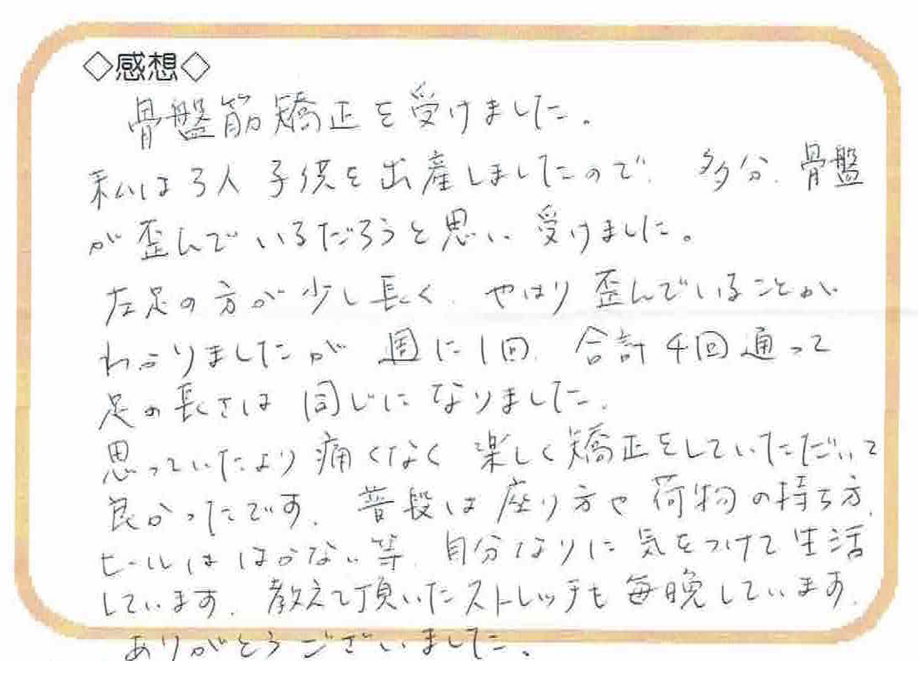 ◇感想◇
骨盤筋矯正を受けました。
私は3人子供を出産しましたので、多分、骨盤
が歪んでいるだろうと思い、受けました。
左足の方が少し長く、やはり歪んでいることが
わかりましたが週に1回、合計4回通って
足の長さは同じになりました。
思っていたより痛くなく楽しく矯正をしていただいて
良かったです。普段は座り方や荷物の持ち方、
ヒールははかない等、自分なりに気をつけて生活
しています。教えて頂いたストレッチも毎晩しています。
ありがとうございました。